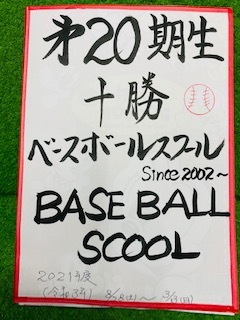 第20期生
十勝
ベースボールスクール
Since 2002～
BASE BALL
SCOOL
2021年度
(令和3年) 8/28(土)～ 3/13(日)